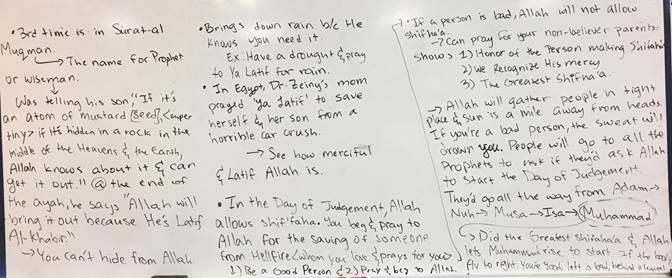 • 3rd time is in Surat-al
Muqman.
→ The name for Prophet
or wiseman.
↓
Was telling his son, "If it's
an atom of mustard (seed), super
tiny & if it's hidden in a rock in the
middle of the Heavens & the Earth,
Allah knows about it & can
get it out!! @ the end of
the ayah, he says "Allah will
bring it out because He's Latif
Al-Khabir."
→ You can't hide from Allah
• Brings down rain b/c He
knows you need it.
Ex: Have a drought & pray
to Ya Latif for rain.
• In Egypt, Dr. Zeiny's mom
prayed 'Ya Latif' to save
herself & her son from a
horrible car crush.
→ See how merciful
& Latif Allah is.
• In the Day of Judgement, Allah
allows shifi'faha. You beg & pray to
Allah for the saving of someone
from Hellfire (whom you love & prays for you)
1) Be a Good Person & 2) Pray & beg to Allah.
• If a person is bad, Allah will not allow
shifa'a.
→ Can pray for your non-believer parents.
shows 1) Honor of the Person making Shifaha
2) We Recognize His mercy
3) The Greatest Shifha'a.
→ Allah will gather people in tight
place & sun is a mile away from heads.
If you're a bad person, the sweat will
drown you. People will go to all the
Prophets to ask if they'd ask Allah
to start the Day of Judgement.
They'd go all the way from Adam →
Nuh → Musa → Isa → Muhammad
→ Did the Greatest Shifaha'a & Allah
lets Muhammad rise to start it. If the book
fly to right, you're good, left is bad, behind is